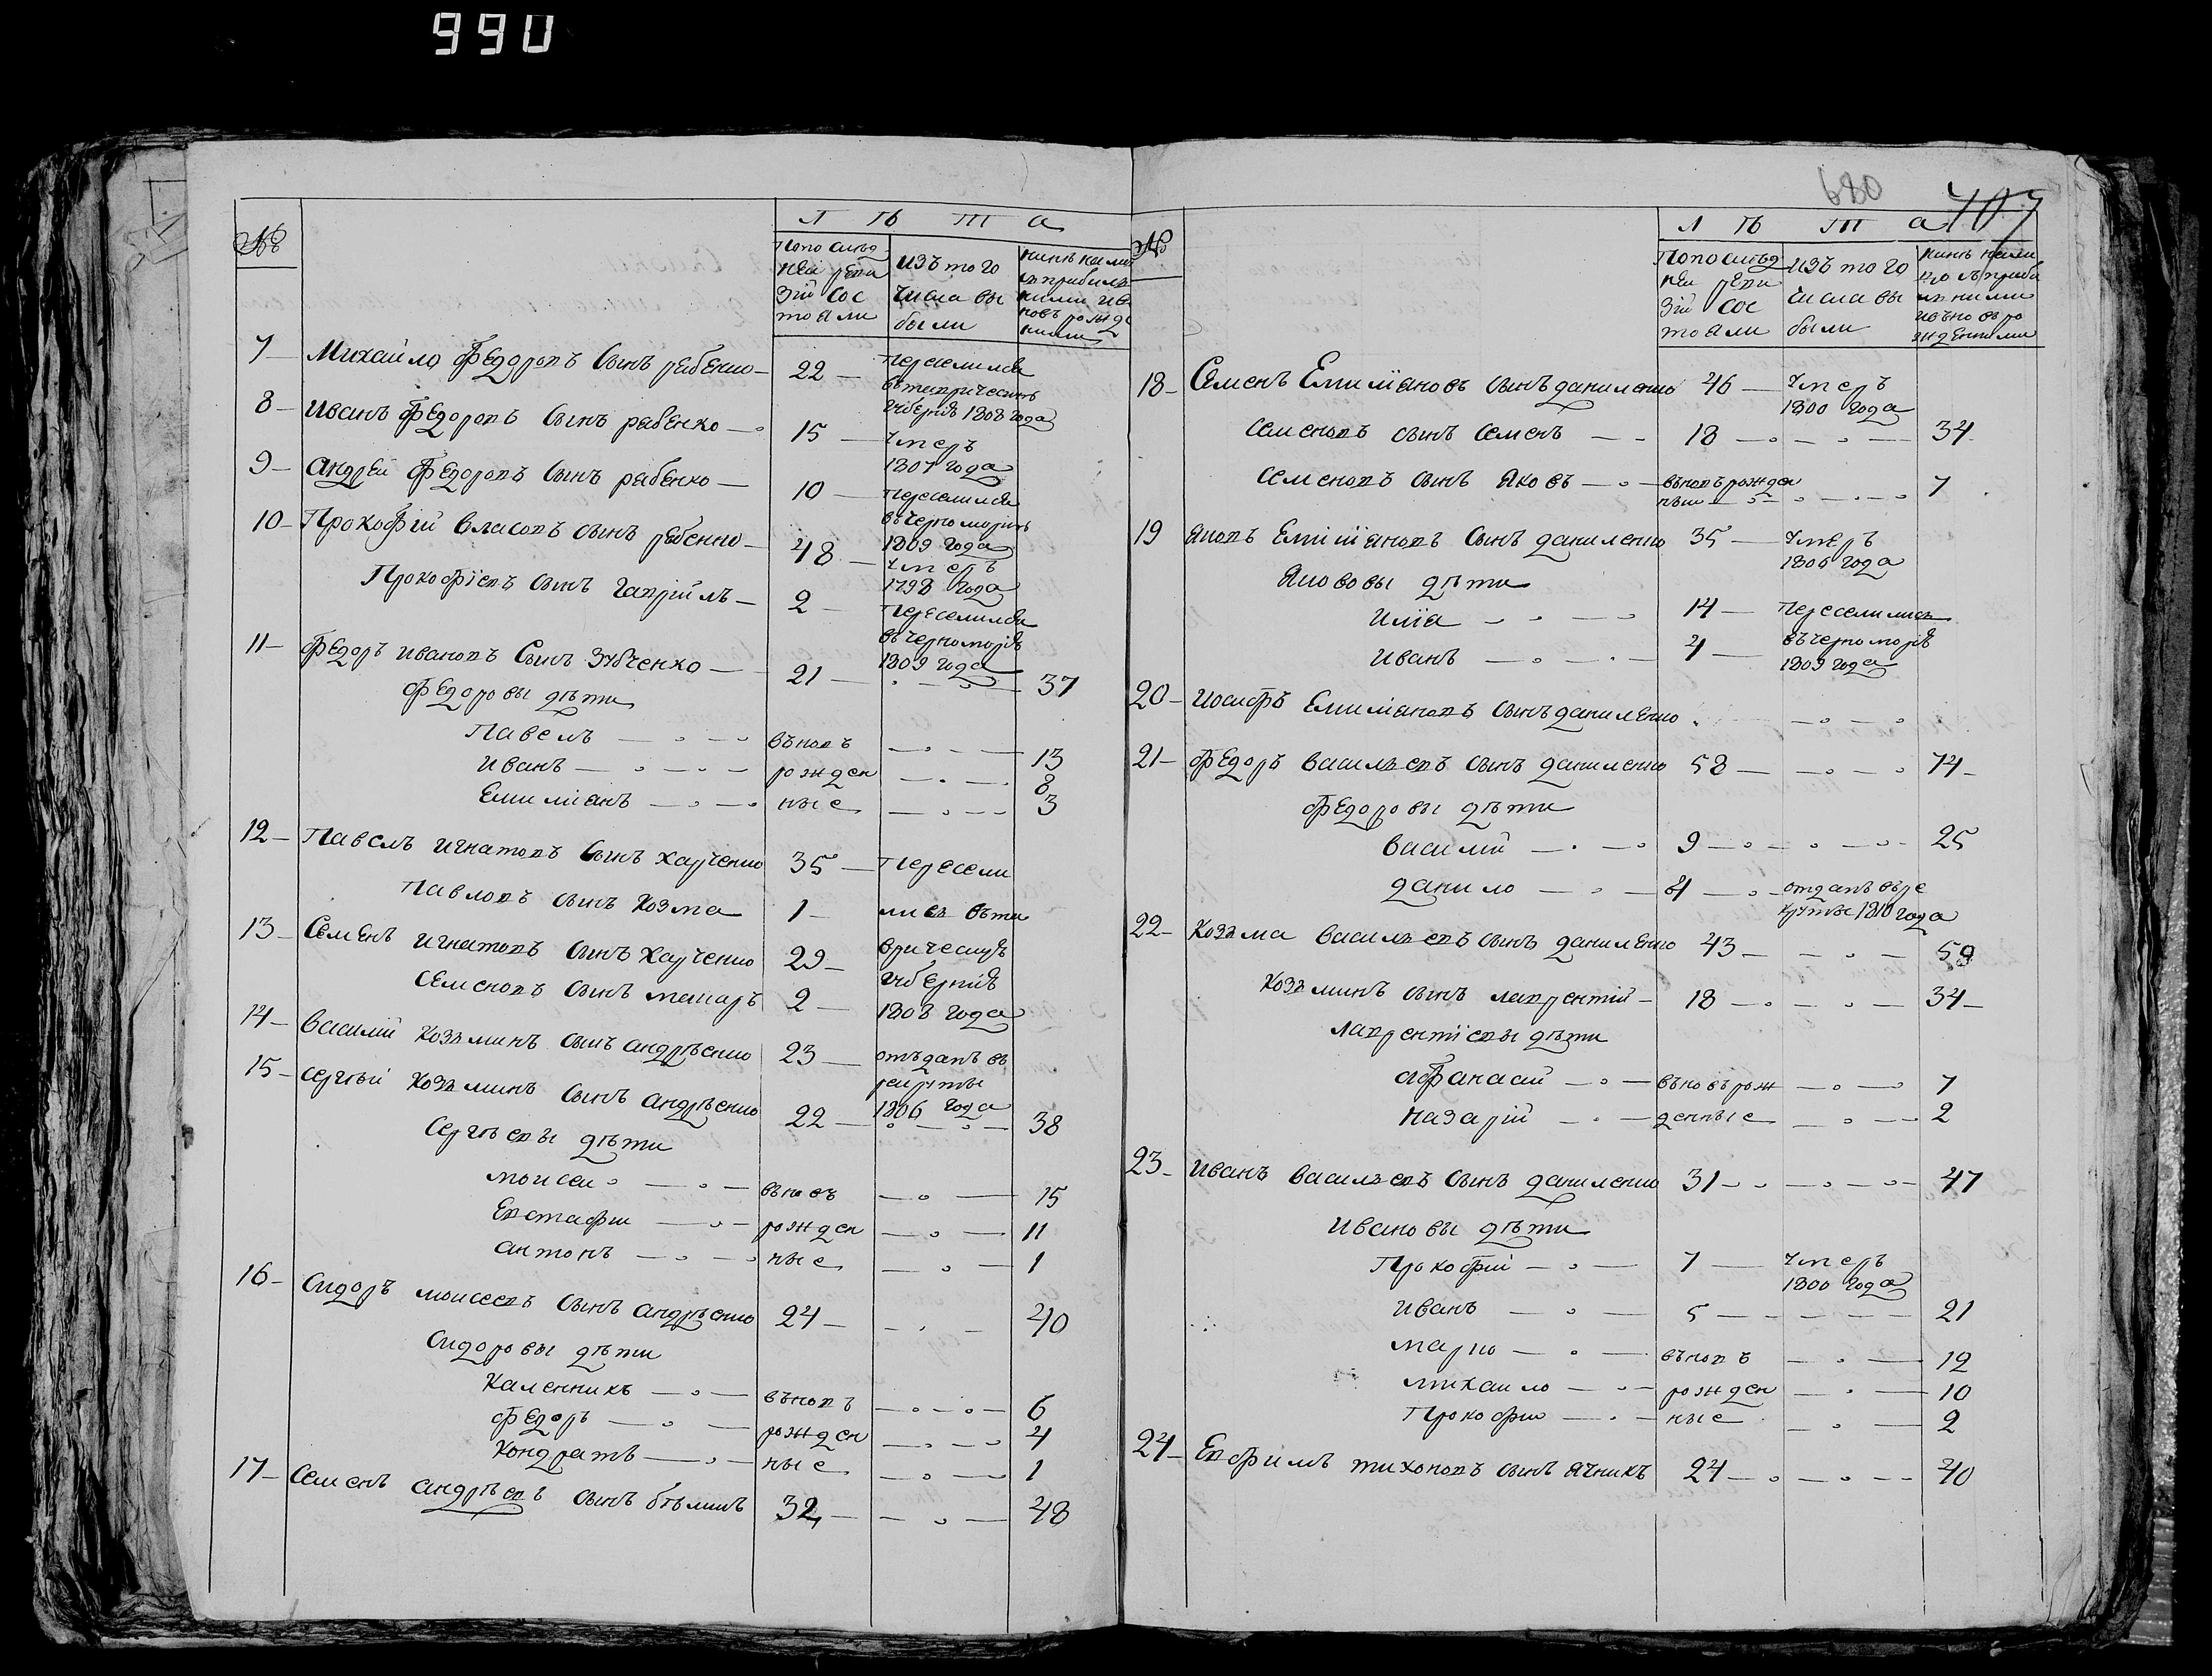 990
№ Л Ѣ Т А
По послѣд ней реви зіи сос тояли
изъ того числа вы были
нынѣ на ли цо съ прибылы ми и въ новь рожде нными
7 Михайло Федоровъ сынъ рябенко 22 переселился въ таврическую губернію 1808 года
8 Иванъ Федоровъ сынъ рябенко 15 умеръ 1807 года
9 андрей Федоровъ сынъ рябенко 10 переселился въ черноморію 1809 года
10 Прокофій власовъ сынъ рябенко 48 умеръ 1798 года
Прокофіевъ сынъ гаврійлъ 2 переселился въ черноморію 1809 года
11 Федоръ ивановъ сынъ зубченко 21 37
Федоровы дѣти
Павелъ въновъ 13
иванъ рожден 8
Емиліянъ ные 3
12 Павелъ игнатовъ сынъ харченко 35 пересели
Павловъ сынъ козма 1 лись въ та
13 Семенъ игнатовъ сынъ харченко 29 вричесскую
Семеновъ сынъ макаръ 2 губернію 1808 года
14 василій козминъ сынъ андрѣенко 23 отъданъ въ рекруты 1806 года
15 сергѣй козминъ сынъ андрѣенко 22 38
Сергѣевы дѣти
моисей въновъ 15
Евстафій рожден 11
антонъ ные 1
16 Сидоръ моисеевъ сынъ андрѣенко 24 40
Сидоровы дѣти
Каленникъ въновъ 6
Федоръ рожден 4
Кондратъ ные 1
17 Семенъ андрѣевъ сынъ бѣлика 32 48
680
407
№ Л Ѣ Т А
По послѣд ней реви зіи сос тояли
изъ того числа вы были
нынѣ на ли цо съ прибы лыми и въ новь ро жденными
18 Семенъ Емиліяновъ сынъ даниленко 46 умеръ 1800 года
семеновъ сынъ семенъ 18 34
семеновъ сынъ яковъ въновъ рожден ный 7
19 яковъ Емиліяновъ сынъ даниленко 35 умеръ 1806 года
яковы дѣти
илія 14 переселились
иванъ 4 въ черноморію 1809 года
20 иосифъ Емиліяновъ сынъ даниленко
21 Федоръ васильевъ сынъ даниленко 58 74
Федоровы дѣти
василій 9 25
данило 4 отданъ въ ре круты 1810 года
22 Козма васильевъ сынъ даниленко 43 59
Козминъ сынъ лаврентій 18 34
лаврентіевы дѣти
афанасій въновъ рож 7
назарій денные 2
23 иванъ васильевъ сынъ даниленко 31 47
ивановы дѣти
Прокофій 7 умеръ 1800 года
иванъ 5 21
марко въновъ 12
михаило рожден 10
Прокофій ные 2
24 Евфимъ тихоновъ сынъ ячникъ 24 40